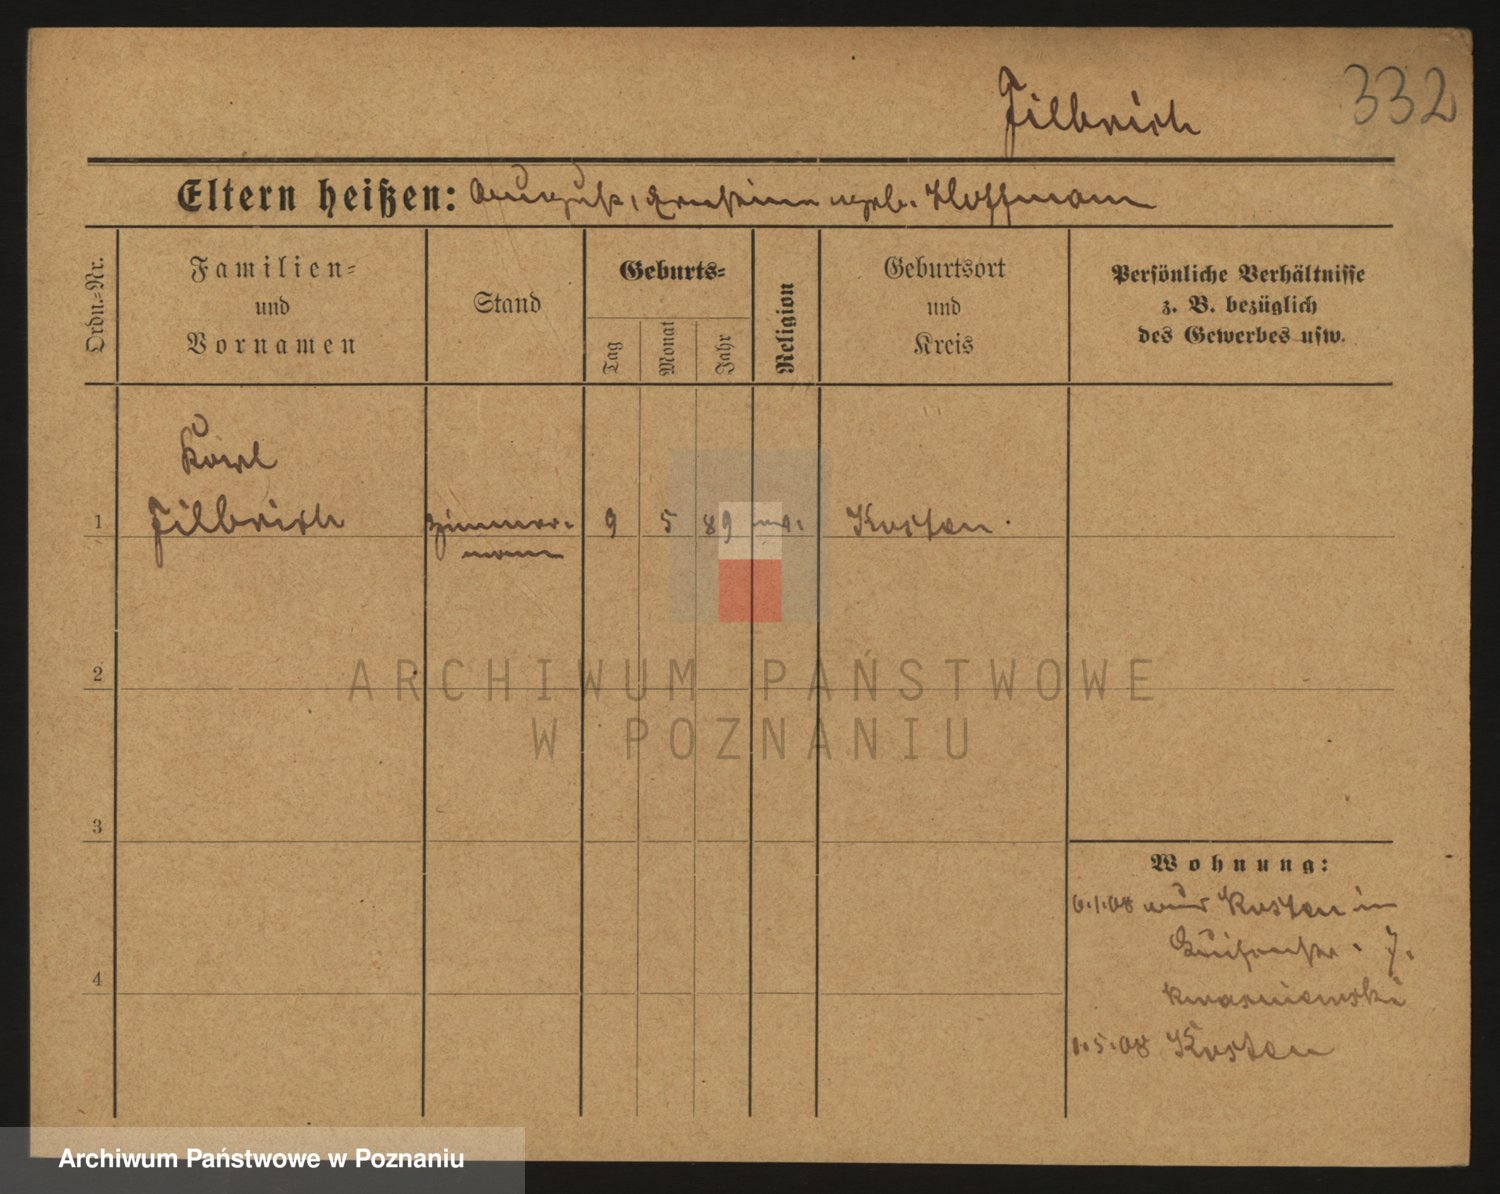 Filbrich 332
Eltern heißen: August, Ernstine geb. Hoffmann
Ordn.-Nr.
Familien-
und
Vornamen
Stand
Geburts-
Tag
Monat
Jahr
Religion
Geburtsort
und
Kreis
Persönliche Verhältnisse
z. B. bezüglich
des Gewerbes usw.
Karl
1 Filbrich Zimmer- 9 5 89 Kosten
mann
2
ARCHIWUM PAŃSTWOWE
W POZNANIU
3
Wohnung:
6.1.08 aus Kosten in
7.
4
Kwasniewski
1.5.08 Kosten
Archiwum Państwowe w Poznaniu